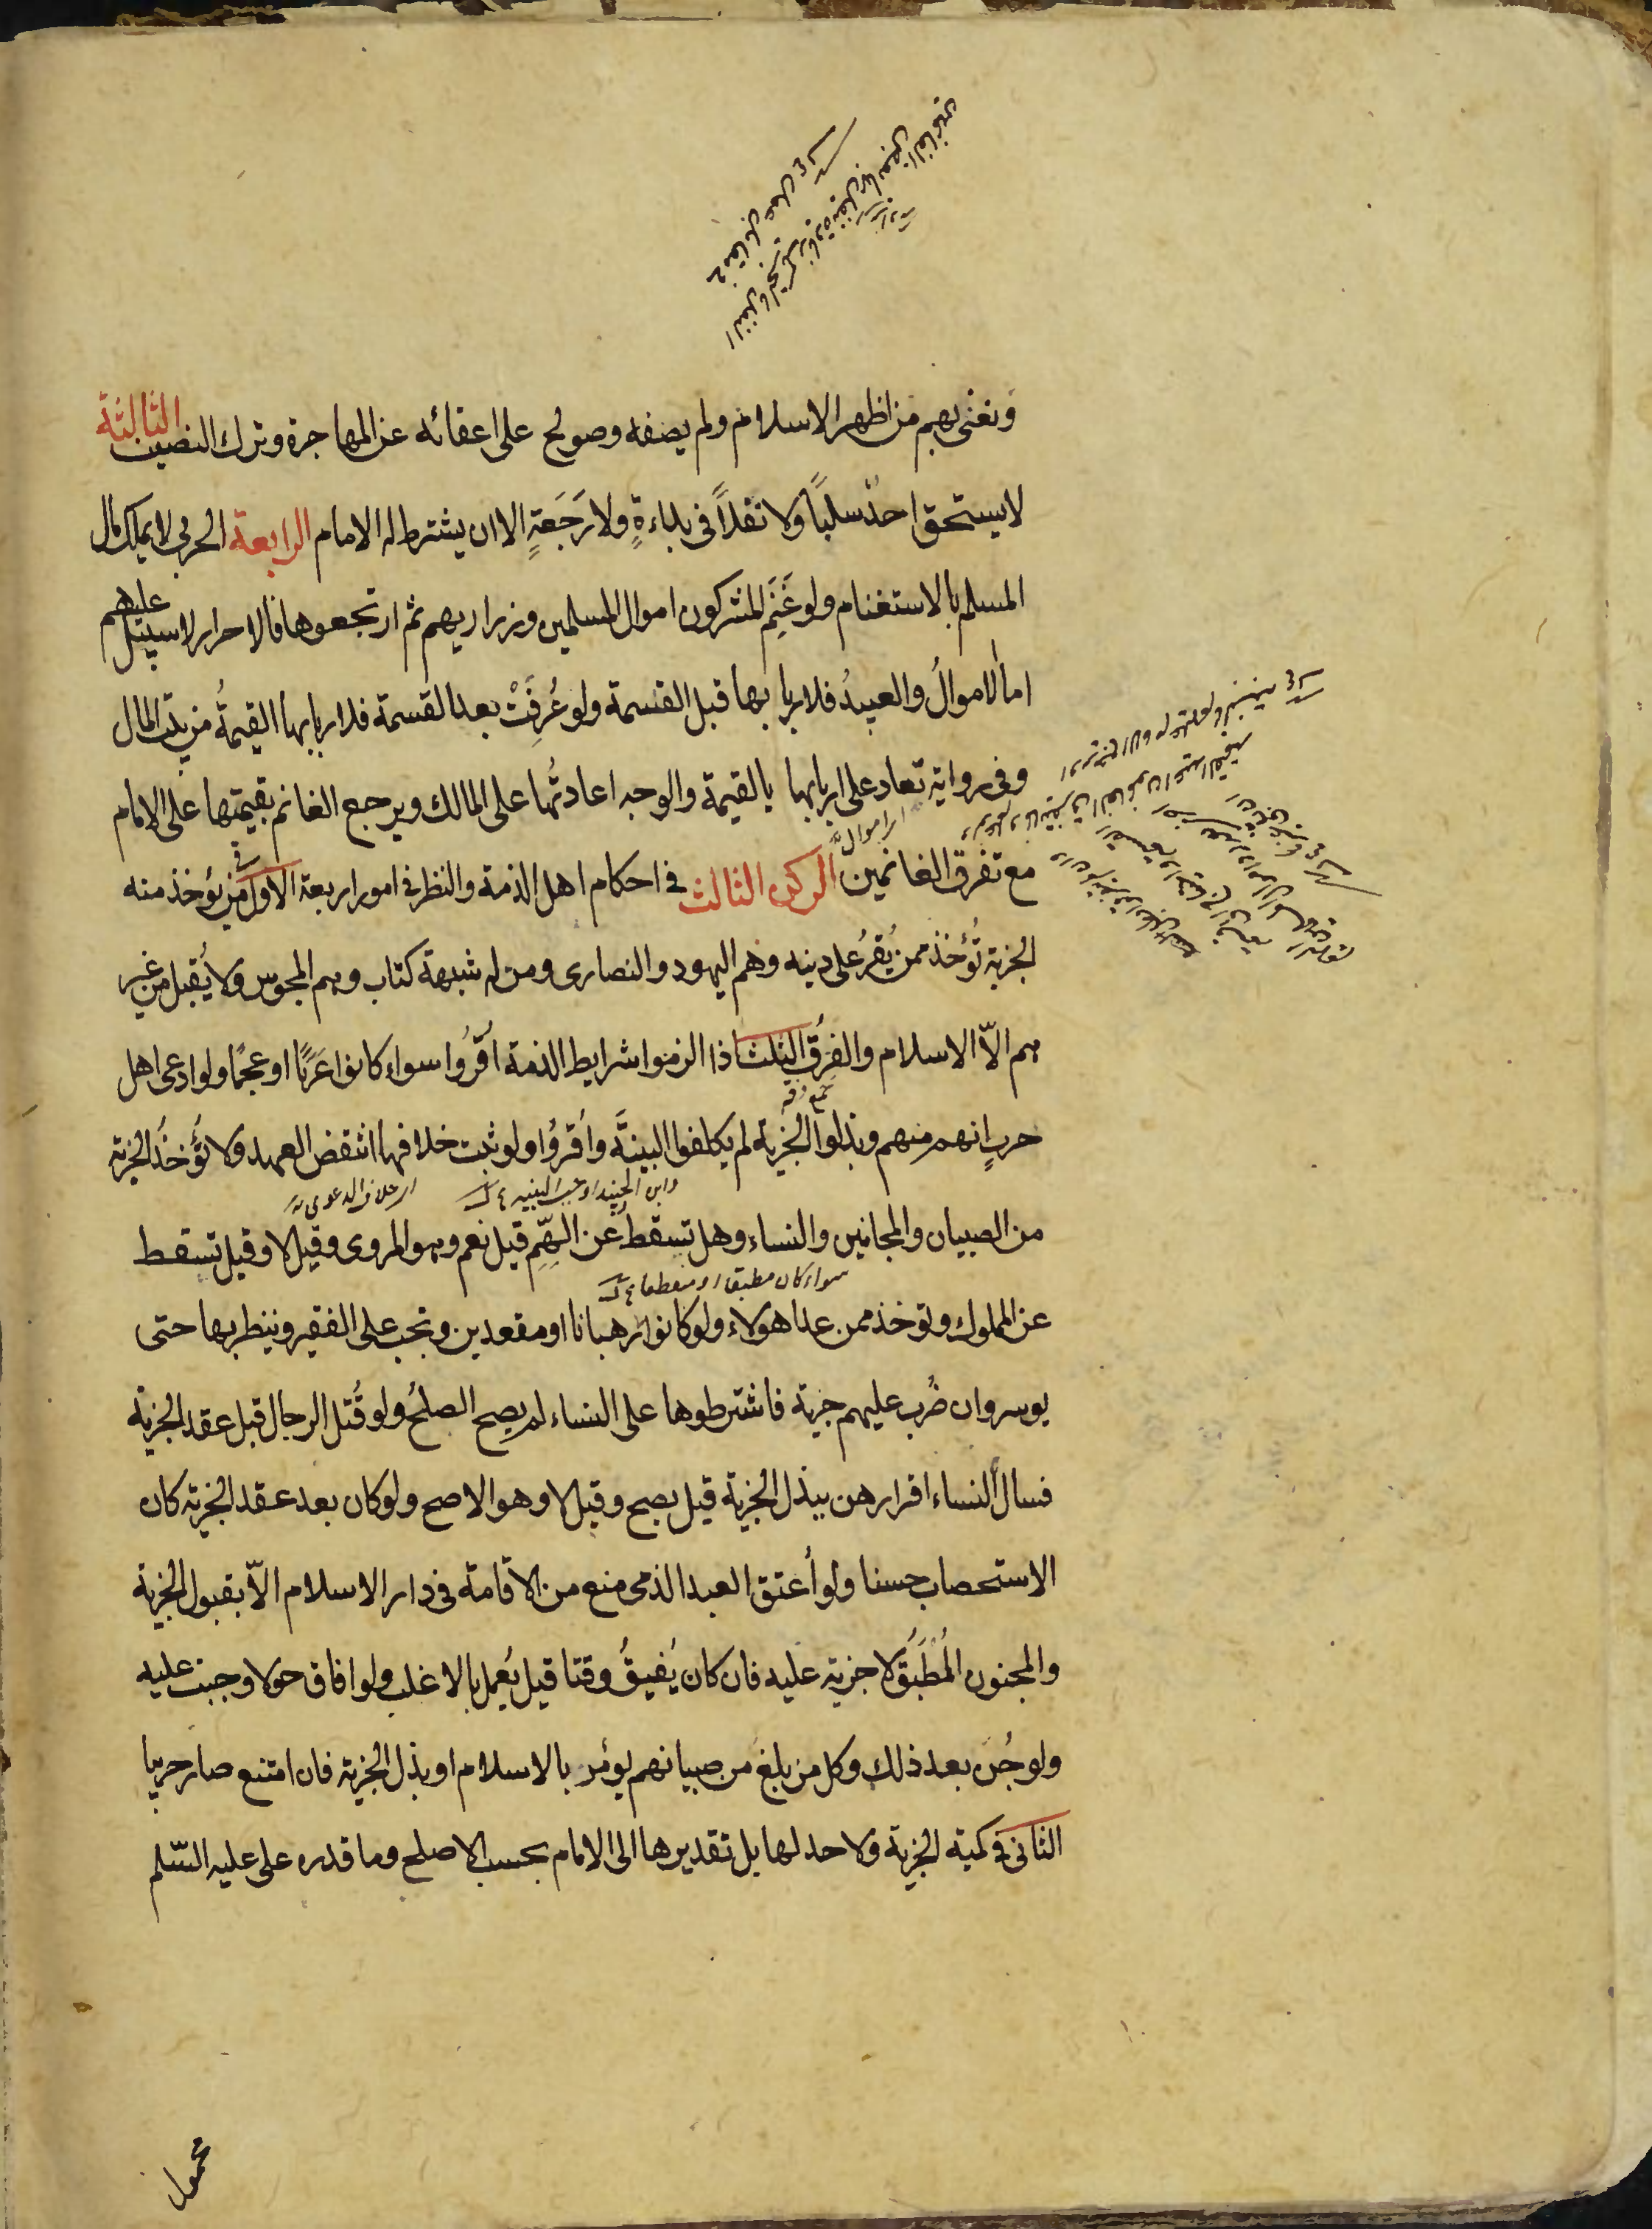 ونعنى بهم من اظهر الاسلام ولم يصفه وصولح على اعفائه عن المهاجرة وترك النصيب الثالثة
لا يستحق احدٌ سلباً ولا نفلاً فى بداءةٍ ولا رَجَعَةٍ الا ان يشترط له الامام الرابعة الحربى لا يملك مال
المسلم بالاستغنام ولو غَنِمَ المشركون اموال المسلمين وذراريهم ثم ارتجعوها فالاحرار لا سبيل عليهم
اما الاموالُ والعبيدُ فلاربابها قبل القسمة ولو عُرِفَتْ بعد القسمة فلاربابها القيمةُ من بيت المال
وفى رواية تعاد على اربابها بالقيمة والوجه اعادتُها على المالك ويرجع الغانم بقيمتها على الامام
مع تفرق الغانمين الركن الثالث فى احكام اهل الذمة والنظر فى امور اربعة الاول فى من يؤخذ منه
الجزية تُؤخذ ممن يُقرُ على دينه وهم اليهود والنصارى ومن له شبهة كتاب وهم المجوس ولا يُقبل من غير
هم الاّ الاسلام والفِرَقُ الثلث اذا التزموا شرايط الذمة اُقرُوا سواء كانوا عَرَبًا او عجمًا ولو ادعى اهل
حربٍ انهم منهم وبذلوا الجزية لم يكلفوا البينَّه واُقروُا ولو ثبت خلافها انتقض العهد ولا تُؤخذُ الجزية
وابن الجنيد اوجب البينه
من الصبيان والمجانين والنساء وهل تسقط عن الهِّمِ قيل نعم وهو المروى وقيل لا وقيل تسقط
سواء كان مطبقا او
عن المملوك وتوخذ ممن عدا هولاء ولو كانوا رهبانا او مقعدين وتجب على الفقير وينظر بها حتى
يوسر وان ضُرب عليهم جزية فاشترطوها على النساء لم يصح الصلحُ ولو قُتل الرجال قبل عقد الجزية
فسال النساء اقرارهن ببذل الجزية قيل يصح وقيل لا وهو الاصح ولو كان بعد عقد الجزية كان
الاستصحاب حسنا ولو اُعتق العبد الذمى منع من الاقامة فى دار الاسلام الاّ بقبول الجزية
والمجنون المُطبَقُ لا جزية عليه فان كان يُفيقُ وقتا قيل يُعمل بالاغلب ولو افاق حولا وجبت عليه
ولو جُنَ بعد ذلك وكل من بلغ من صبيانهم يؤمر بالاسلام او بذل الجزية فان امتنع صار حربيا
الثانى فى كمية الجزية ولا حد لها بل تقديرها الى الامام بحسب الاصلح وما قدره على عليه السّلم
محمول